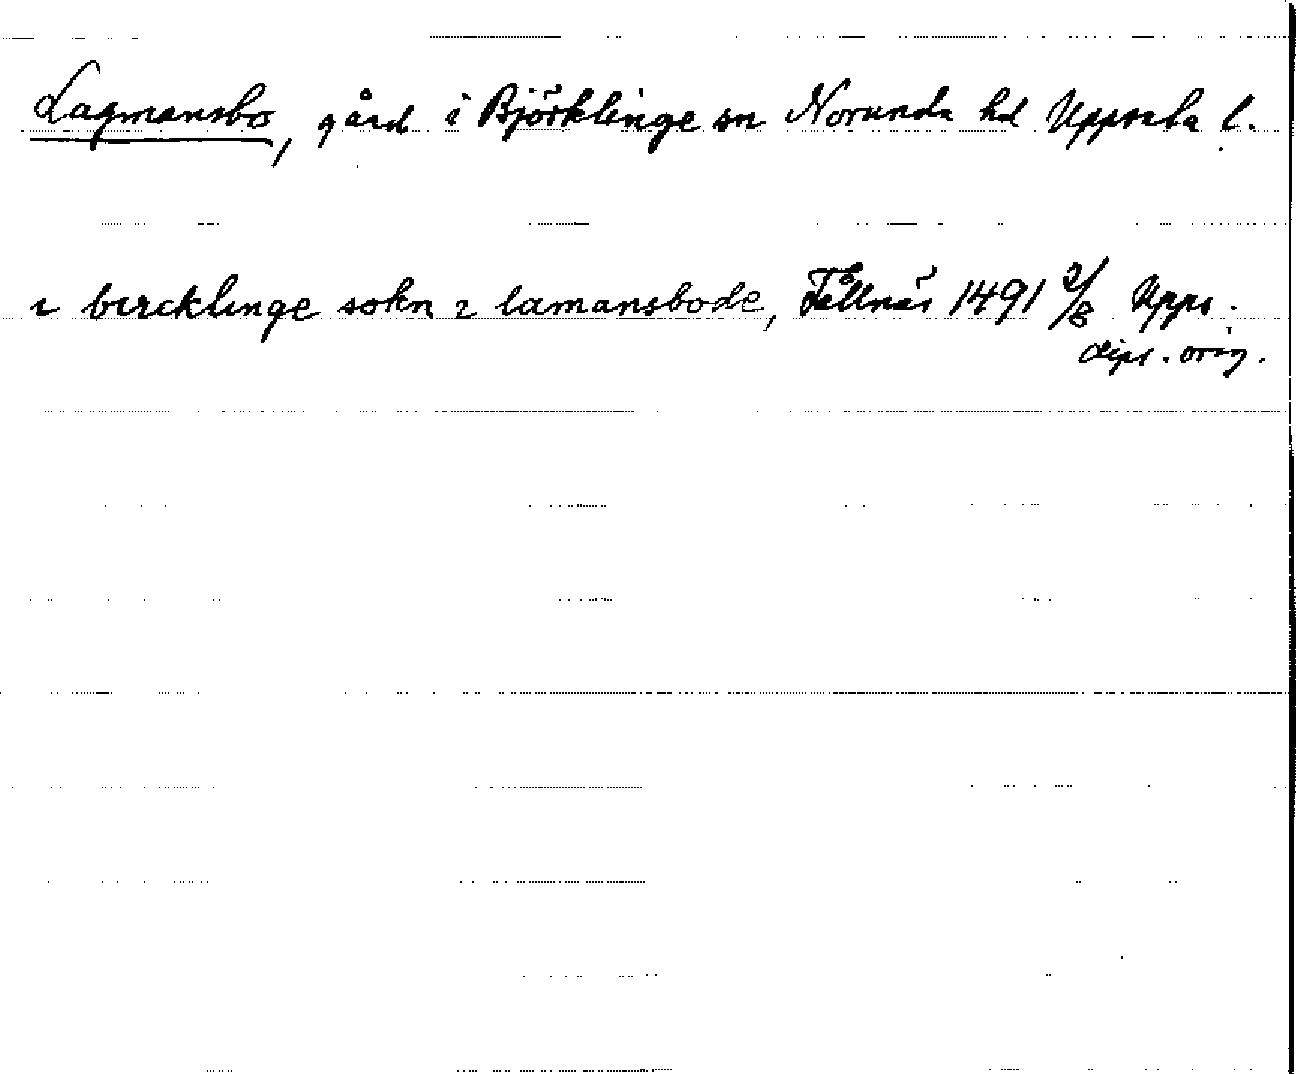 Lagmansbo, gård i Björklinge sn Norunda hd Uppsala l.
i bircklinge sokn i lamansbode, Fållnäs 1491 2/8 Upps.
dipl. orig.